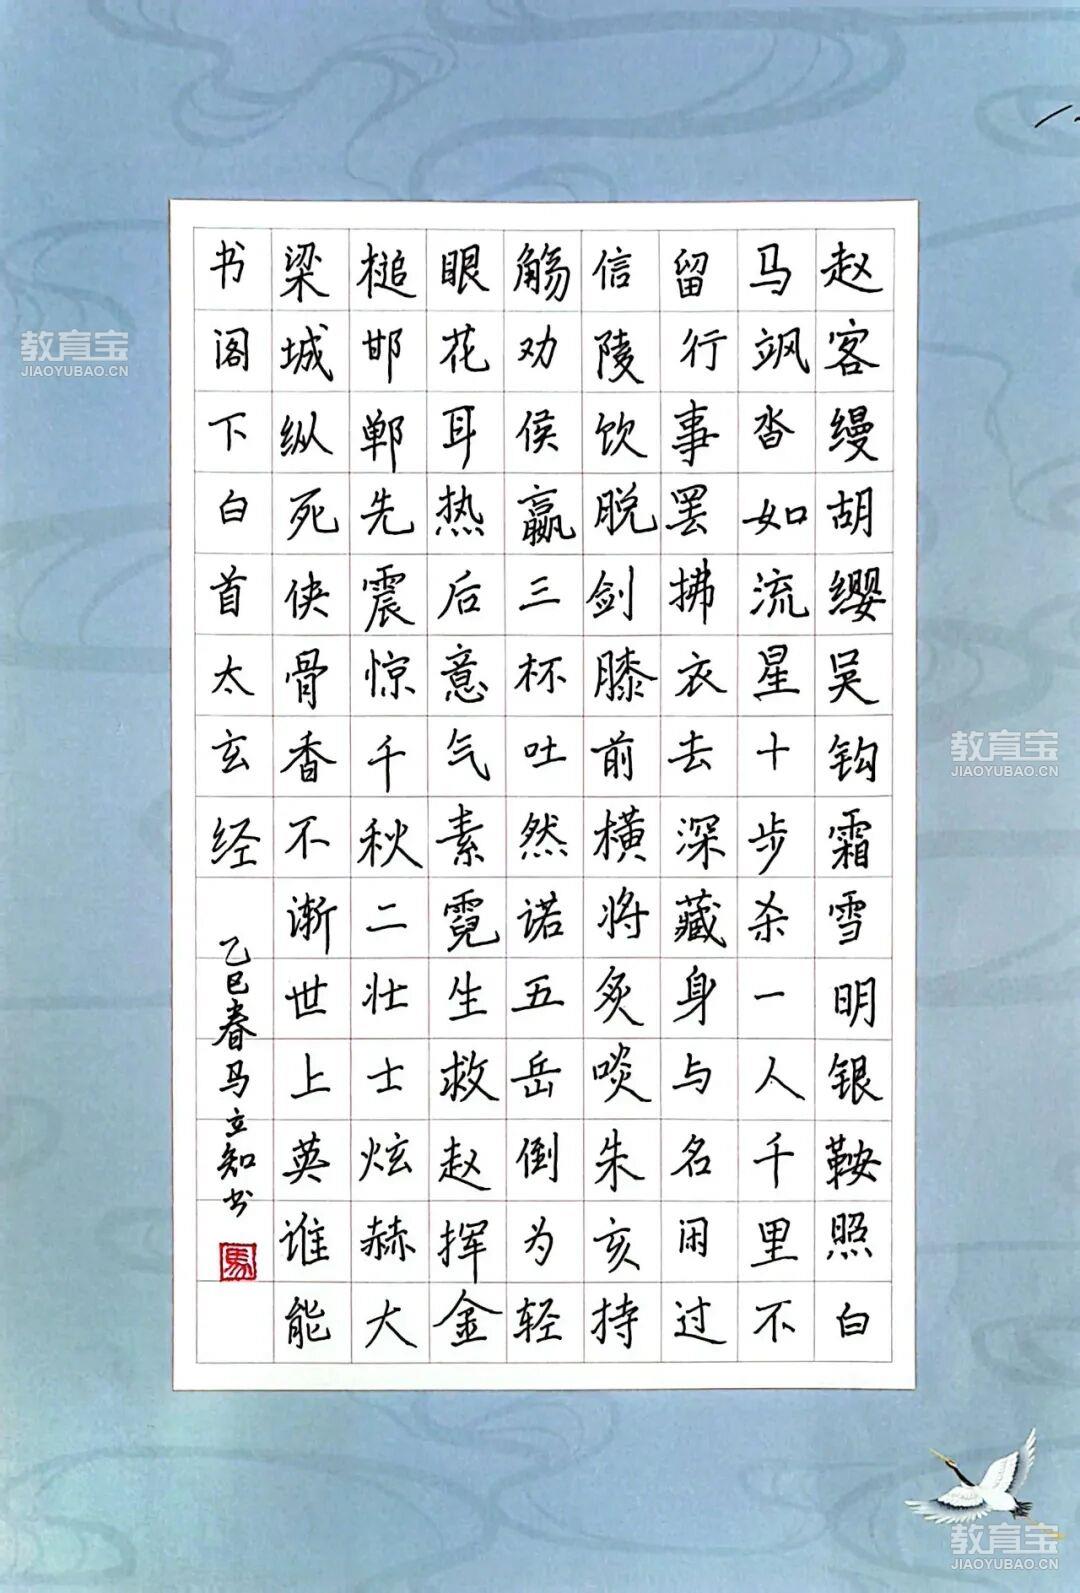 赵客缦胡缨吴钩霜雪明银鞍照白
马飒沓如流星十步杀一人千里不
留行事罢拂衣去深藏身与名闲过
信陵饮脱剑膝前横将炙啖朱亥持
觞劝侯嬴三杯吐然诺五岳倒为轻
眼花耳热后意气素霓生救赵挥金
槌邯郸先震惊千秋二壮士炫赫大
梁城纵死侠骨香不渐世上英谁能
书阁下白首太玄经
乙巳春马立知书
馬
教育宝
JIAOYUBAO.CN
教育宝
JIAOYUBAO.CN
教育宝
JIAOYUBAO.CN